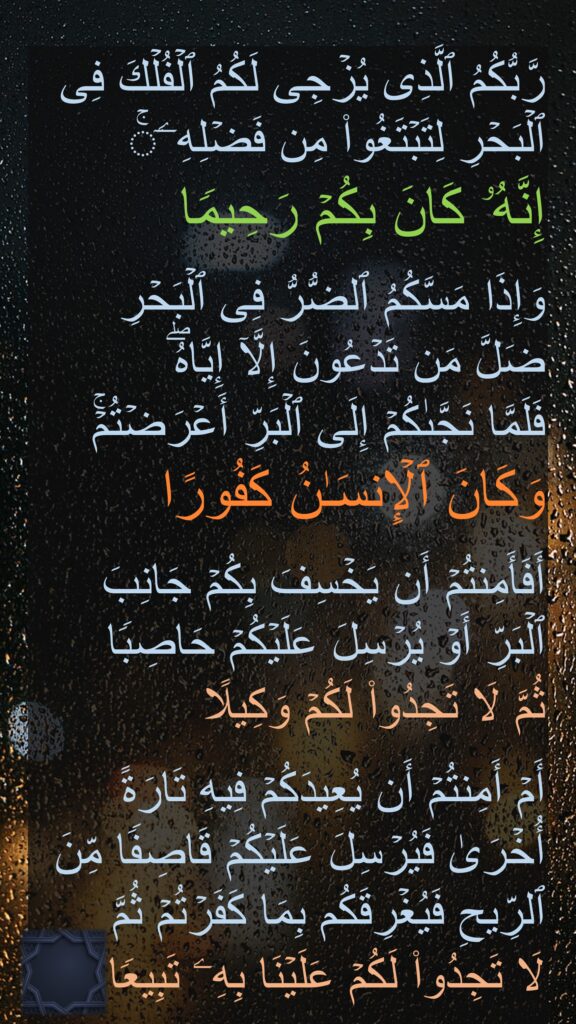 رَّبُّكُمُ ٱلَّذِى يُزْجِى لَكُمُ ٱلْفُلْكَ فِى
ٱلْبَحْرِ لِتَبْتَغُوا۟ مِن فَضْلِهِۦٓ ۚ
إِنَّهُۥ كَانَ بِكُمْ رَحِيمًا
وَإِذَا مَسَّكُمُ ٱلضُّرُّ فِى ٱلْبَحْرِ
ضَلَّ مَن تَدْعُونَ إِلَّآ إِيَّاهُ ۖ
فَلَمَّا نَجَّىٰكُمْ إِلَى ٱلْبَرِّ أَعْرَضْتُمْ ۚ
وَكَانَ ٱلْإِنسَـٰنُ كَفُورًا
أَفَأَمِنتُمْ أَن يَخْسِفَ بِكُمْ جَانِبَ
ٱلْبَرِّ أَوْ يُرْسِلَ عَلَيْكُمْ حَاصِبًا
ثُمَّ لَا تَجِدُوا۟ لَكُمْ وَكِيلًا
أَمْ أَمِنتُمْ أَن يُعِيدَكُمْ فِيهِ تَارَةً
أُخْرَىٰ فَيُرْسِلَ عَلَيْكُمْ قَاصِفًا مِّنَ
ٱلرِّيحِ فَيُغْرِقَكُم بِمَا كَفَرْتُمْ ثُمَّ
لَا تَجِدُوا۟ لَكُمْ عَلَيْنَا بِهِۦ تَبِيعًا